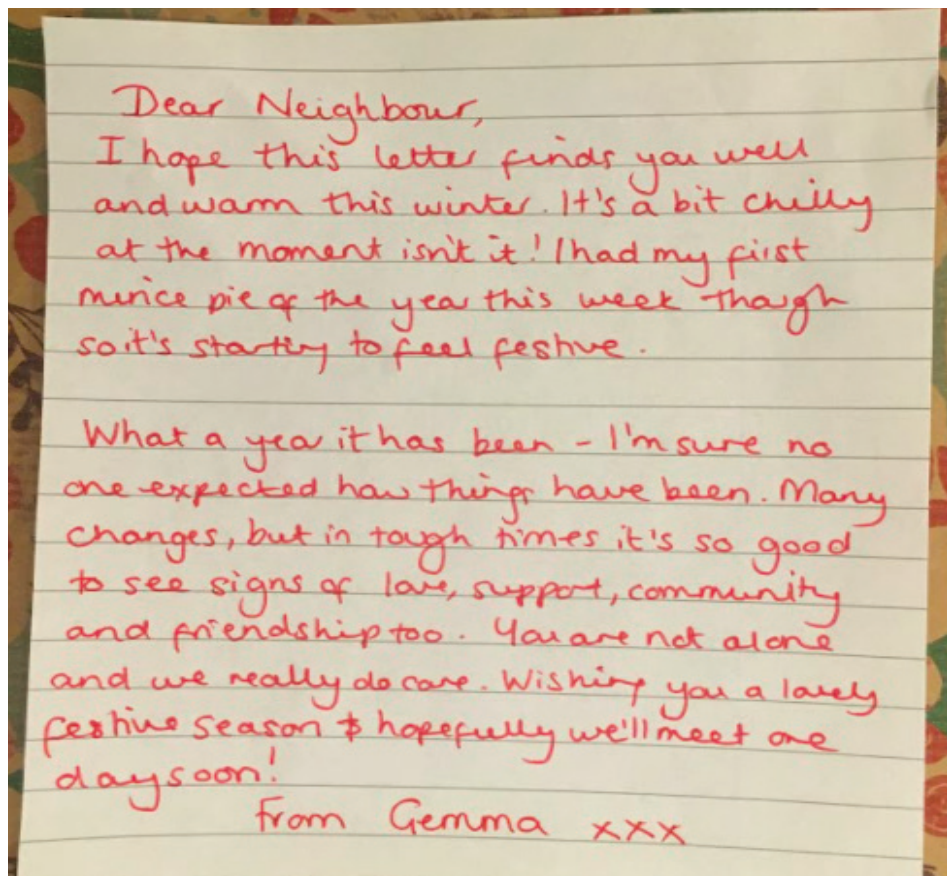 Dear Neighbour,
I hope this letter finds you well
and warm this winter. It's a bit chilly
at the moment isn't it! I had my first
mince pie of the year this week though
so it's starting to feel festive.
What a year it has been - I'm sure no
one expected how things have been. Many
changes, but in tough times it's so good
to see signs of love, support, community
and friendship too. You are not alone
and we really do care. Wishing you a lovely
festive season & hopefully we'll meet one
day soon!
From Gemma xxx